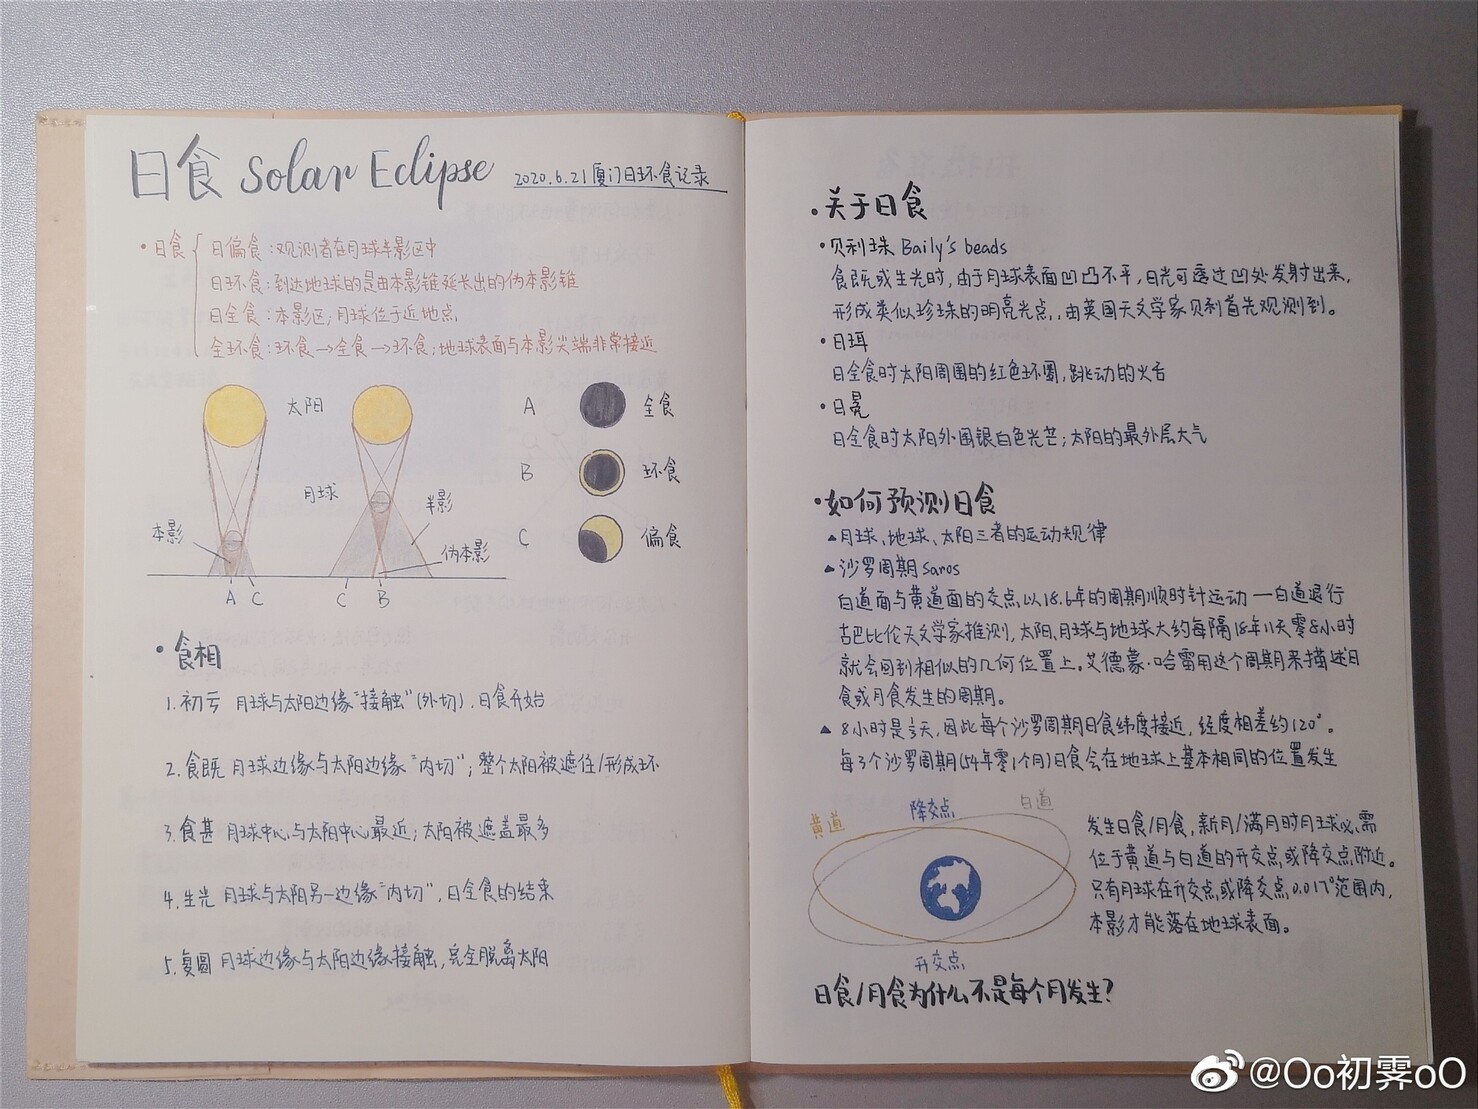 日食 Solar Eclipse
2020.6.21厦门日环食记录
·日食
日偏食：观测者在月球半影区中
日环食：到达地球的是由本影锥延长出的伪本影锥
日全食：本影区；月球位于近地点
全环食：环食→全食→环食；地球表面与本影尖端非常接近
太阳
月球
本影
半影
伪本影
A C
C B
A 全食
B 环食
C 偏食
·食相
1.初亏 月球与太阳边缘"接触"(外切)，日食开始
2.食既 月球边缘与太阳边缘"内切"；整个太阳被遮住/形成环
3.食甚 月球中心与太阳中心最近；太阳被遮盖最多
4.生光 月球与太阳另一边缘"内切"，日全食的结束
5.复圆 月球边缘与太阳边缘接触，完全脱离太阳
·关于日食
·贝利珠 Baily's beads
食既或生光时，由于月球表面凹凸不平，日光可透过凹处发射出来，
形成类似珍珠的明亮光点，由英国天文学家贝利首先观测到。
·日珥
日全食时太阳周围的红色环圈，跳动的火舌
·日冕
日全食时太阳外围银白色光芒；太阳的最外层大气
·如何预测日食
▲月球、地球、太阳三者的运动规律
▲沙罗周期 Saros
白道面与黄道面的交点以18.6年的周期顺时针运动—白道退行
古巴比伦天文学家推测，太阳、月球与地球大约每隔18年11天零8小时
就会回到相似的几何位置上。艾德蒙·哈雷用这个周期来描述日
食或月食发生的周期。
▲8小时是⅓天，因此每个沙罗周期日食纬度接近，经度相差约120°。
每3个沙罗周期(54年零1个月)日食会在地球上基本相同的位置发生
黄道
降交点
白道
升交点
发生日食/月食，新月/满月时月球必需
位于黄道与白道的升交点或降交点附近。
只有月球在升交点或降交点0.017°范围内，
本影才能落在地球表面。
日食/月食为什么不是每个月发生？
@Oo初霁oO